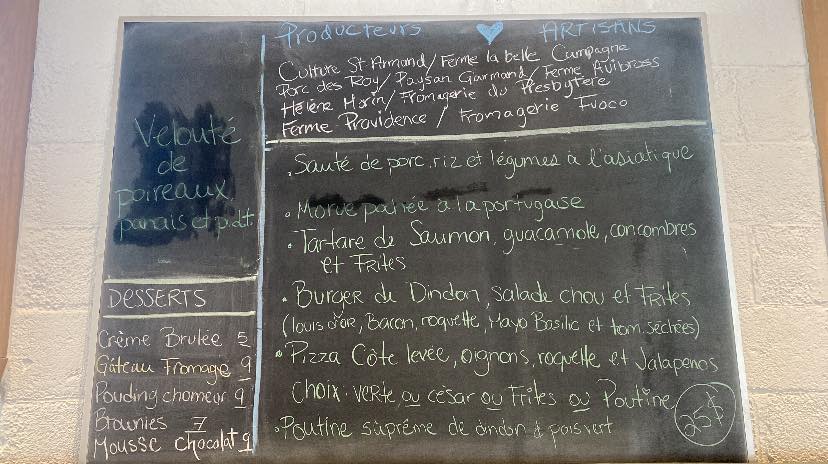 Velouté
de
poireaux,
panais et p.d.t.
DESSERTS
Crème Brulée 5
Gâteau Fromage 9
Pouding chomeur 9
Brownies 7
Mousse chocolat 9
Producteurs ARTISANS
Culture St-Armand / Ferme la belle Campagne
Porc des Roy / Paysan Garmand / Ferme Avibross
Hélène Morin / Fromagerie du Presbytère
Ferme Providence / Fromagerie Fuoco
. Sauté de porc, riz et légumes à l'asiatique
. Morue pochée à la portugaise
. Tartare de Saumon, guacamole, concombres
et Frites
. Burger de Dindon, salade chou et Frites
(louis d'or, Bacon, roquette, Mayo Basilic et tom. séchées)
. Pizza Côte levée, oignons, roquette et Jalapenos
Choix: verte ou césar ou Frites ou Poutine
. Poutine suprême de dindon & pois vert
25$